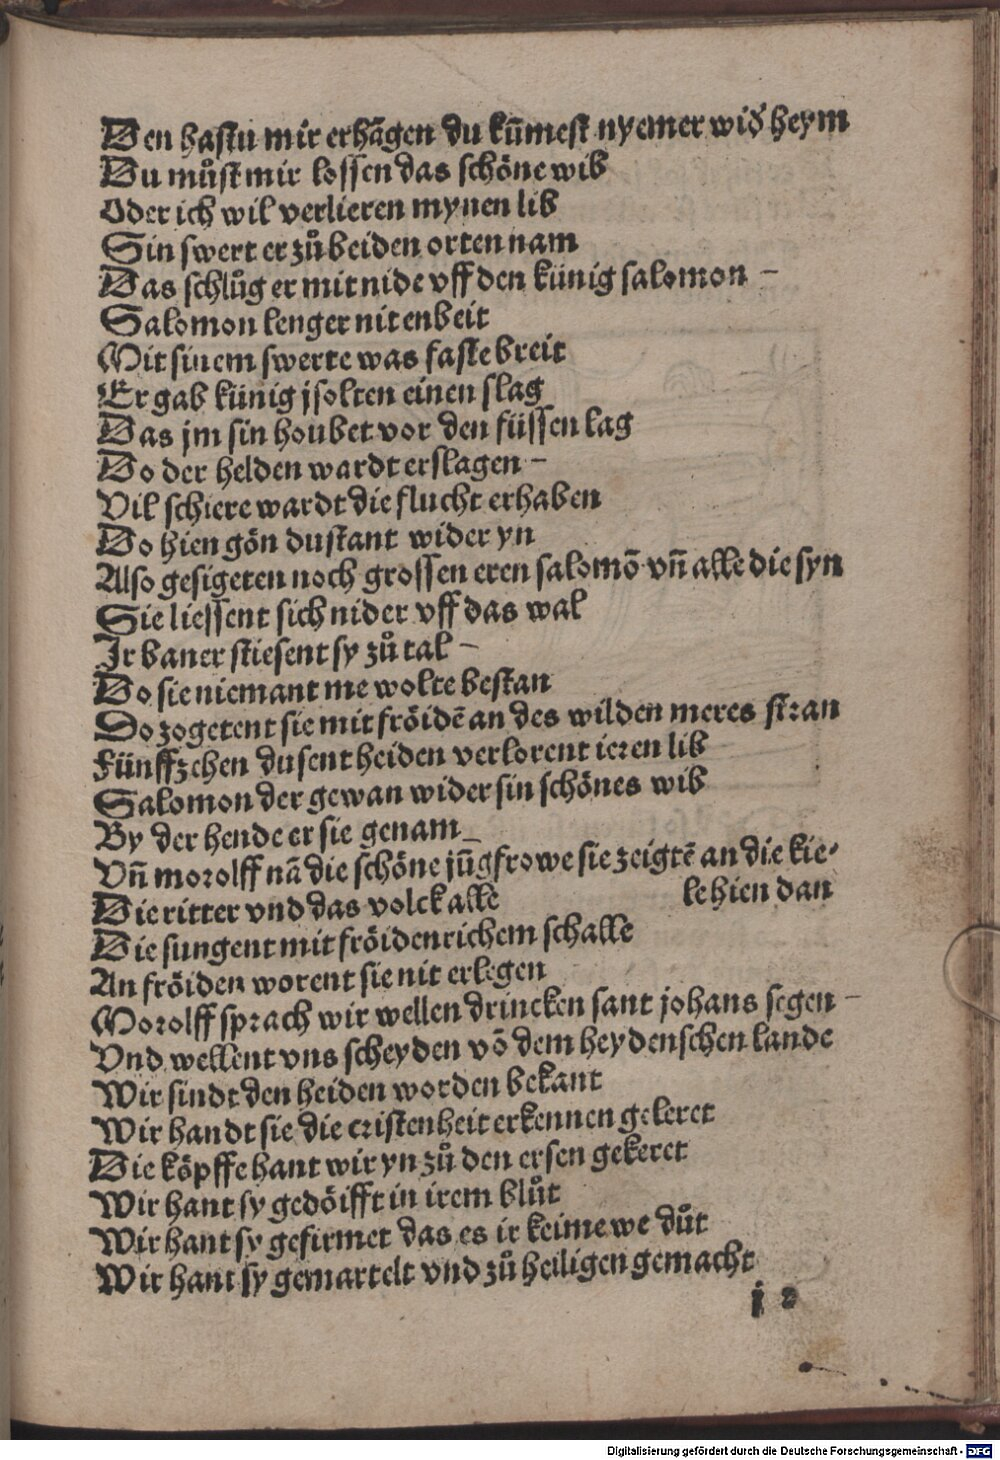 Den hastu mir erhãgen du kũmest nyemer wid̕ heym
Du můst mir lossen das schöne wib
Oder ich wil verlieren mynen lib
Sin swert er zů beiden orten nam
Das schlůg er mit nide vff den künig salomon –
Salomon lenger nit enbeit
Mit sinem swerte was faste breit
Er gab künig jsolten einen slag
Das jm sin houbet vor den füssen lag
Do der helden wardt erslagen –
Vil schiere wardt die flucht erhaben
Do hien gön dustant wider yn
Also gesigeten noch grossen eren salomõ vñ alle die syn
Sie liessent sich nider vff das wal
Ir baner stiesent sy zů tal –
Do sie niemant me wolte bestan
Do zogetent sie mit fröidẽ an des wilden meres stran
Fünffzehen dusent heiden verlorent ieren lib
Salomon der gewan wider sin schönes wib
By der hende er sie genam –
Vñ morolff nã die schöne jũgfrowe sie zeigtẽ an die kie⸗
Die ritter vnd das volck alle le hien dan
Die sungent mit fröidenrichem schalle
An fröiden worent sie nit erlegen
Morolff sprach wir wellen drincken sant johans segen –
Vnd wellent vns scheyden võ dem heydenschen lande
Wir sindt den heiden worden bekant
Wir handt sie die cristenheit erkennen geleret
Die köpffe hant wir yn zů den ersen gekeret
Wir hant sy gedöifft in irem blůt
Wir hant sy gefirmet das es ir keime we důt
Wir hant sy gemartelt vnd zů heiligen gemacht
j 2
Digitalisierung gefördert durch die Deutsche Forschungsgemeinschaft - DFG